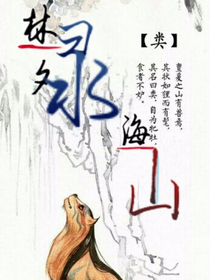 林夕
录
海
山
【类】
亶爰之山有兽焉，
其状如狸而有髦，
其名曰类，自为牝牡，
食者不妒。